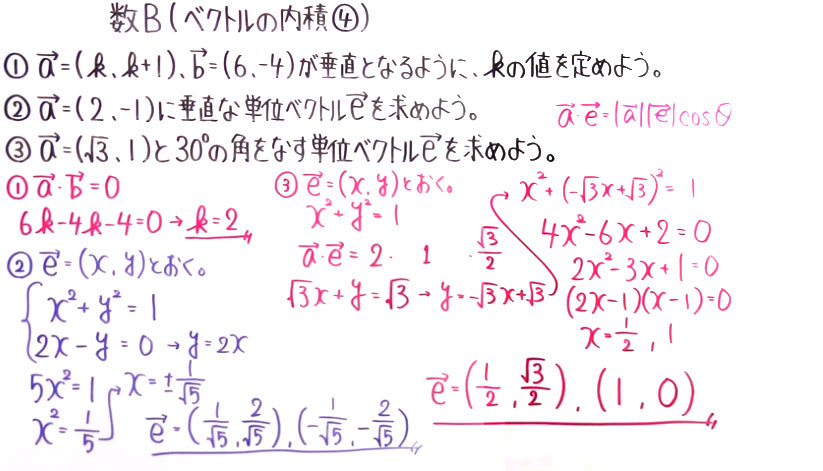 数B(ベクトルの内積④)
① a⃗=(k,k+1)、b⃗=(6,-4)が垂直となるように、kの値を定めよう。
② a⃗=(2,-1)に垂直な単位ベクトルe⃗を求めよう。
a⃗·e⃗=|a⃗||e⃗|cosθ
③ a⃗=(√3,1)と30°の角をなす単位ベクトルe⃗を求めよう。
① a⃗·b⃗=0
6k-4k-4=0→k=2
② e⃗=(x,y)とおく。
x²+y²=1
2x-y=0→y=2x
5x²=1
x²=1/5
x=±1/√5
e⃗=(1/√5,2/√5),(-1/√5,-2/√5)
③ e⃗=(x,y)とおく。
x²+y²=1
a⃗·e⃗=2·1·√3/2
√3x+y=√3→y=-√3x+√3
x²+(-√3x+√3)²=1
4x²-6x+2=0
2x²-3x+1=0
(2x-1)(x-1)=0
x=1/2,1
e⃗=(1/2,√3/2),(1,0)